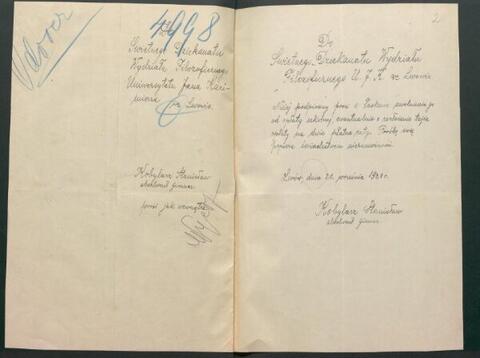 4998
Do
Świetnego Dziekanatu
Wydziału Filozoficznego
Uniwersytetu Jana Kazi-
mierza we Lwowie.
Kobylarz Stanisław
prosi jak wewnątrz
2
Do
Świetnego Dziekanatu Wydziału
Filozoficznego U. J. K. we Lwowie
Niżej podpisany prosi o łaskawe zwolnienie go
od opłaty szkolnej, ewentualnie o rozłożenie tejże
opłaty na raty. Prośbę swą
popiera świadectwem niezamożności.
Lwów, dnia 21. września 192
Kobylarz Stanisław